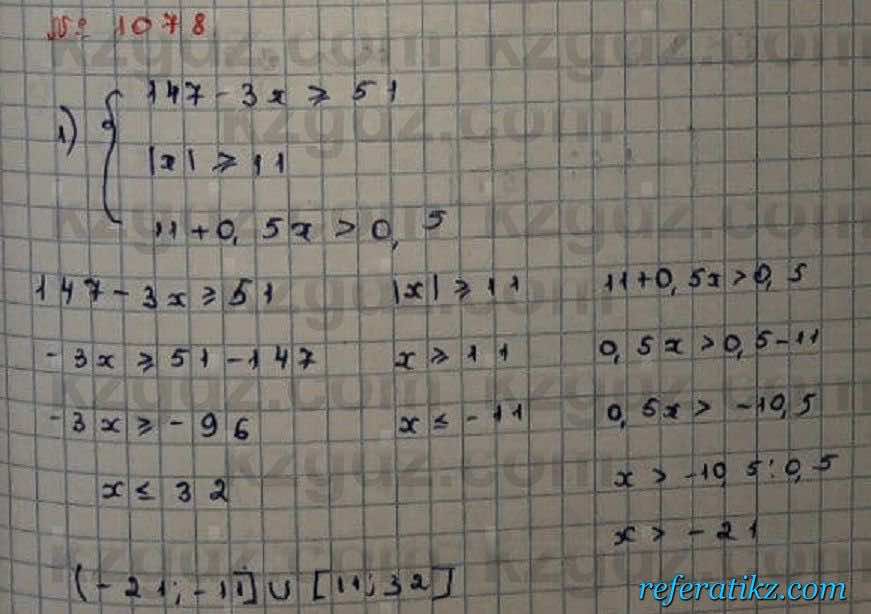 № 1078
1) { 147 - 3x ⩾ 51
|x| ⩾ 11
11 + 0,5x > 0,5
147 - 3x ⩾ 51
-3x ⩾ 51 - 147
-3x ⩾ -96
x ≤ 32
|x| ⩾ 11
x ⩾ 11
x ≤ -11
11 + 0,5x > 0,5
0,5x > 0,5 - 11
0,5x > -10,5
x > -10,5 : 0,5
x > -21
(-21; -11] ∪ [11; 32]
kzgdz.com
referatikz.com